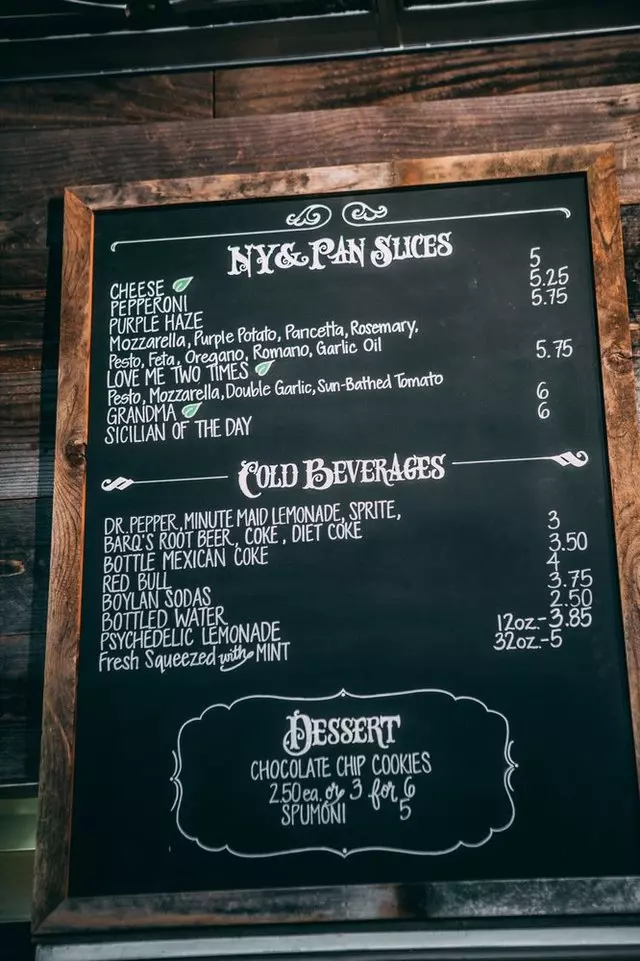 NY& PAN SLICES
CHEESE 5
PEPPERONI 5.25
PURPLE HAZE 5.75
Mozzarella, Purple Potato, Pancetta, Rosemary,
Pesto, Feta, Oregano, Romano, Garlic Oil
LOVE ME TWO TIMES 5.75
Pesto, Mozzarella, Double Garlic, Sun-Bathed Tomato
GRANDMA 6
SICILIAN OF THE DAY 6
COLD BEVERAGES
DR. PEPPER, MINUTE MAID LEMONADE, SPRITE,
BARQ'S ROOT BEER, COKE, DIET COKE 3
BOTTLE MEXICAN COKE 3.50
RED BULL 4
BOYLAN SODAS 3.75
BOTTLED WATER 2.50
PSYCHEDELIC LEMONADE 12oz.-3.85
Fresh Squeezed with MINT 32oz.-5
DESSERT
CHOCOLATE CHIP COOKIES
2.50 ea. or 3 for 6
SPUMONI 5